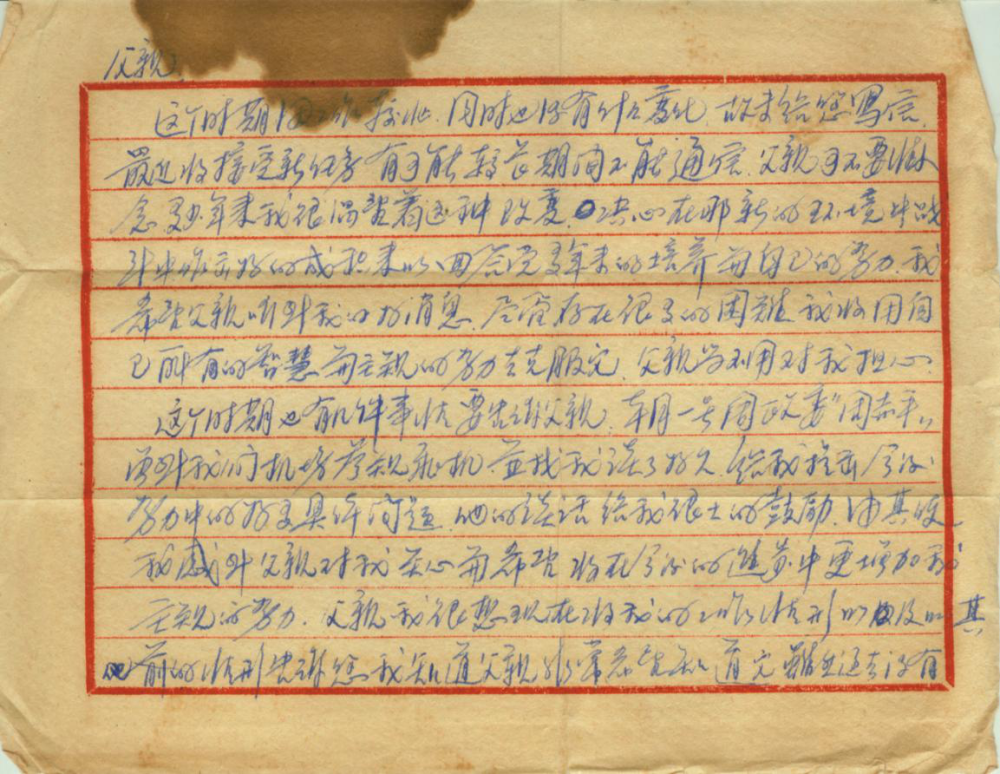 父亲：
这个时期因工作较忙，同时也没有什么变化，故未给您写信，
最近将接受新任务有可能较长期间不能通信，父亲可不要惦
念多少年来我很渴望着这种改变，决心在那新的环境中战
斗中作出好的成积来以回答党多年来的培养和自己的努力，我
希望父亲听到我的好消息，尽管存在很多的困难我将用自
己所有的智慧和主观的努力去克服它，父亲不用对我担心。
这个时期也有几件事情要告诉父亲，本月一号周政委“周赤平”
来到我们机场参观飞机并找我谈了好久，给我指出今后
努力中的好多具体问题，他的谈话给我很大的鼓励，由其使
我感到父亲对我关心和希望将在今后的进步中更增加我
主观的努力，父亲我很想现在将我的工作情形以及以其
前的情形告诉您我知道父亲非常知道它过去没有